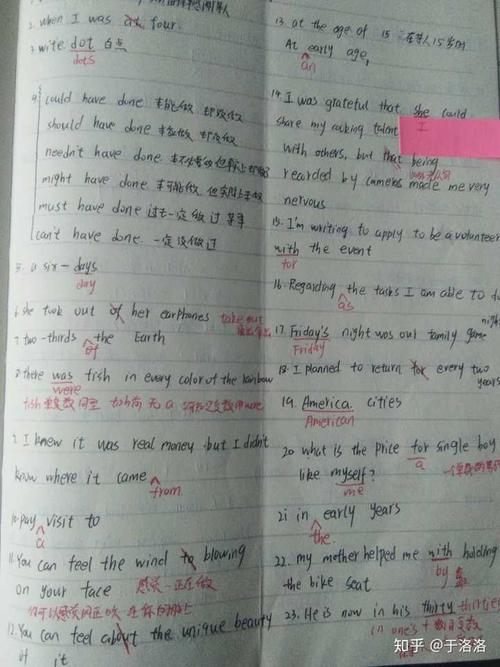 2. when I was at four.
3. write dot 白点
dots
4 could have done 本能做 却没做
should have done 本应做 却没做
needn't have done
might have done 本可能做
must have done 过去一定做过某事
can't have done. 一定没做过
5. a six-days
day
6. she took out of her earphones take out
7 two-thirds the Earth
of
8. there was fish in every color of the rainbow
were
I knew it was real money but I didn't
know where it came
from
10. pay visit to
a
11. You can feel the wind to blowing
on your face 感觉…正在做
12. You can feel about the unique beauty
of it
13. at the age of 15 在某人15岁时
At early age,
an
14. I was grateful that she could
I
share my cooking talent
with others, but that being
recorded by cameras made me very
nervous
15. I'm writing to apply to be a volunteer
with the event
for
16. Regarding the tasks I am able to do
as
night
17. Friday's night was our family game
Friday
18. I planned to return for every two
years
19. America cities
American
20 what is the price for single boy
a
like myself?
me
21 in early years
the
22. my mother helped me with holding
by
the bike seat
23. He is now in his thirty thirties
in one's + 数词复数
知乎 @于洛洛